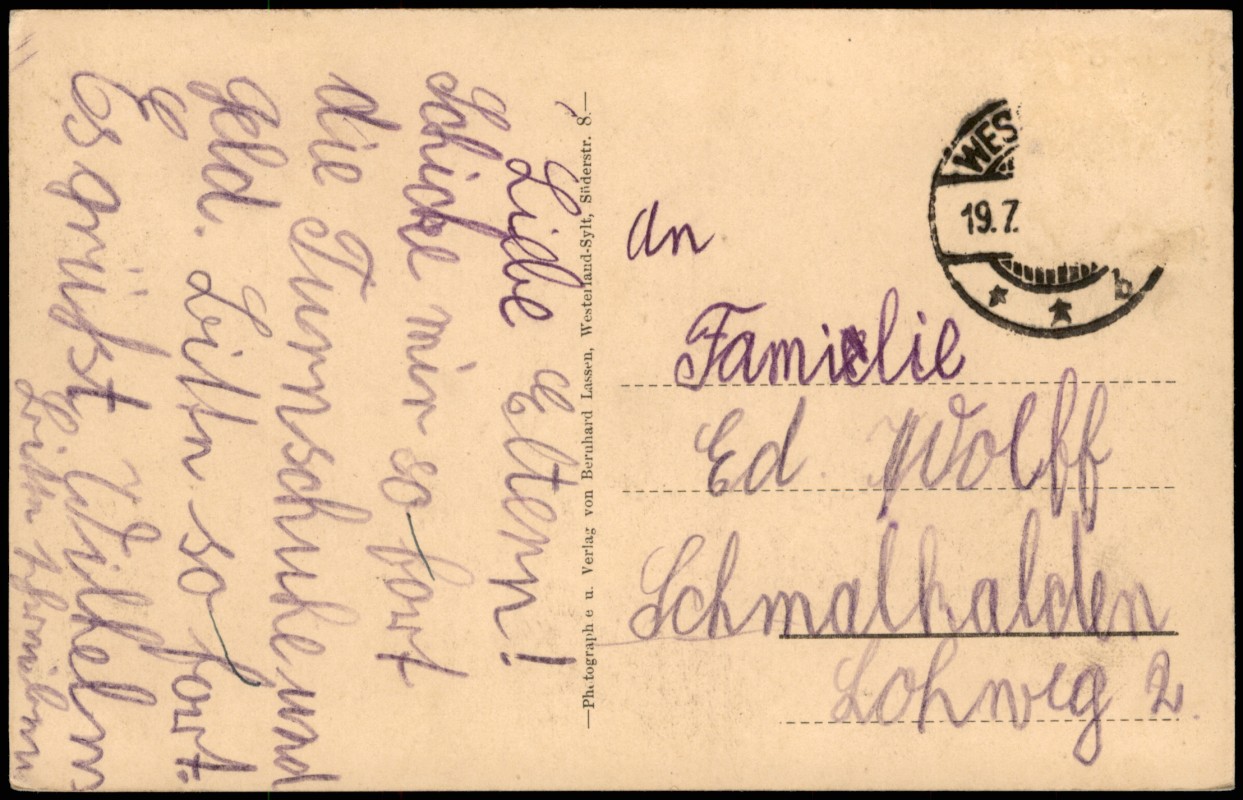 Libe Eltern!
Schicke mir so fort
die Turnschuhe und
Geld. Bitte so fort.
Es grüßt Wilhelm
Bitte schreiben
—Photographie u. Verlag von Bernhard Lassen, Westerland-Sylt, Süderstr. 8.—
WES
19.7.
b
An
Familie
Ed Wolff
Schmalkalden
Lohweg 2.